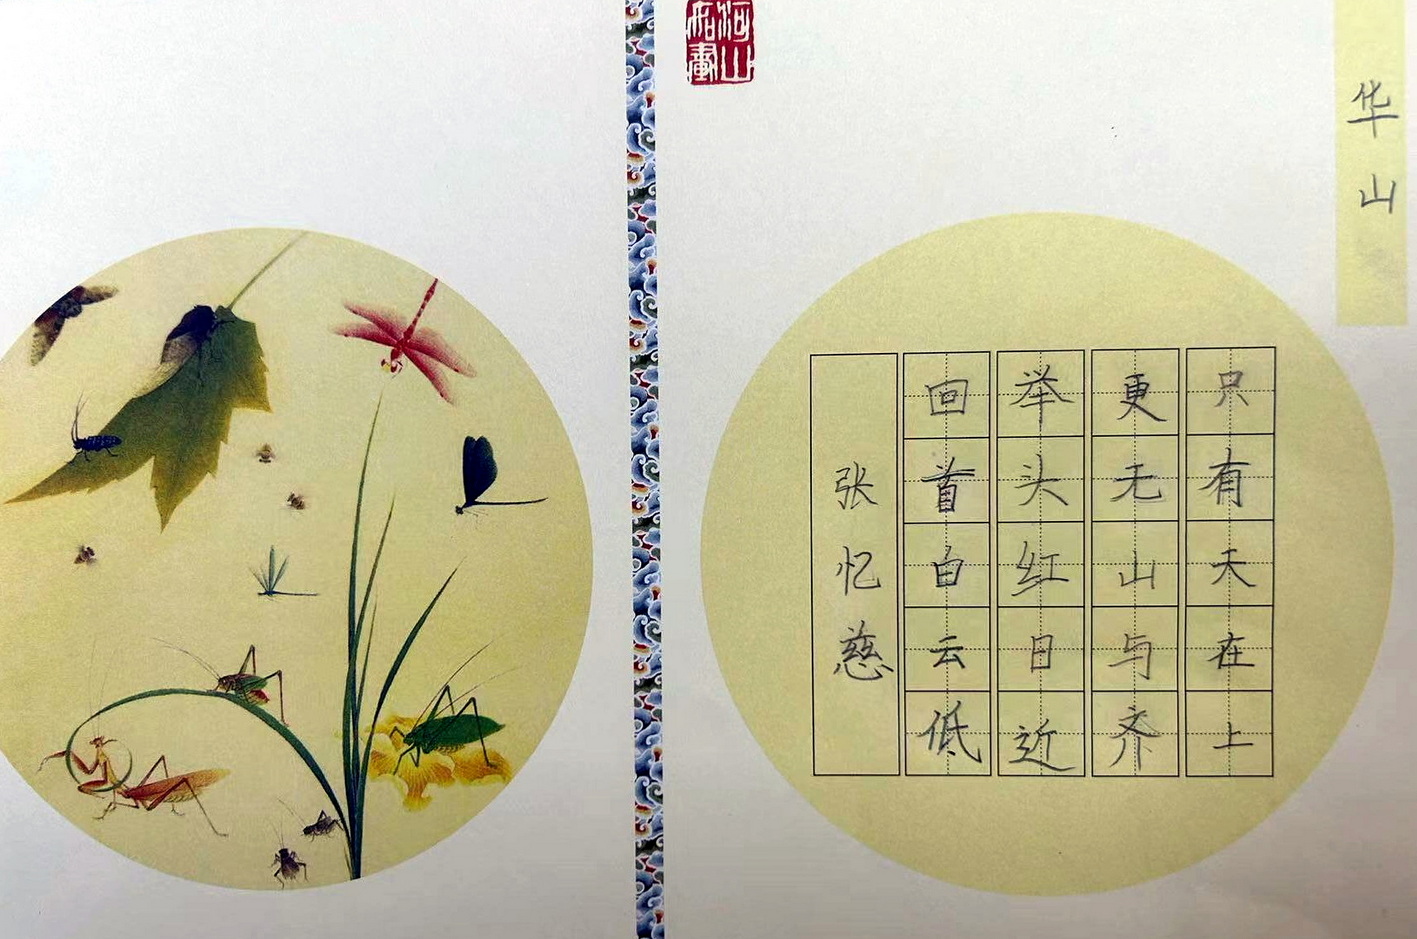 华山
只有天在上
更无山与齐
举头红日近
回首白云低
张忆慈
河山
如画